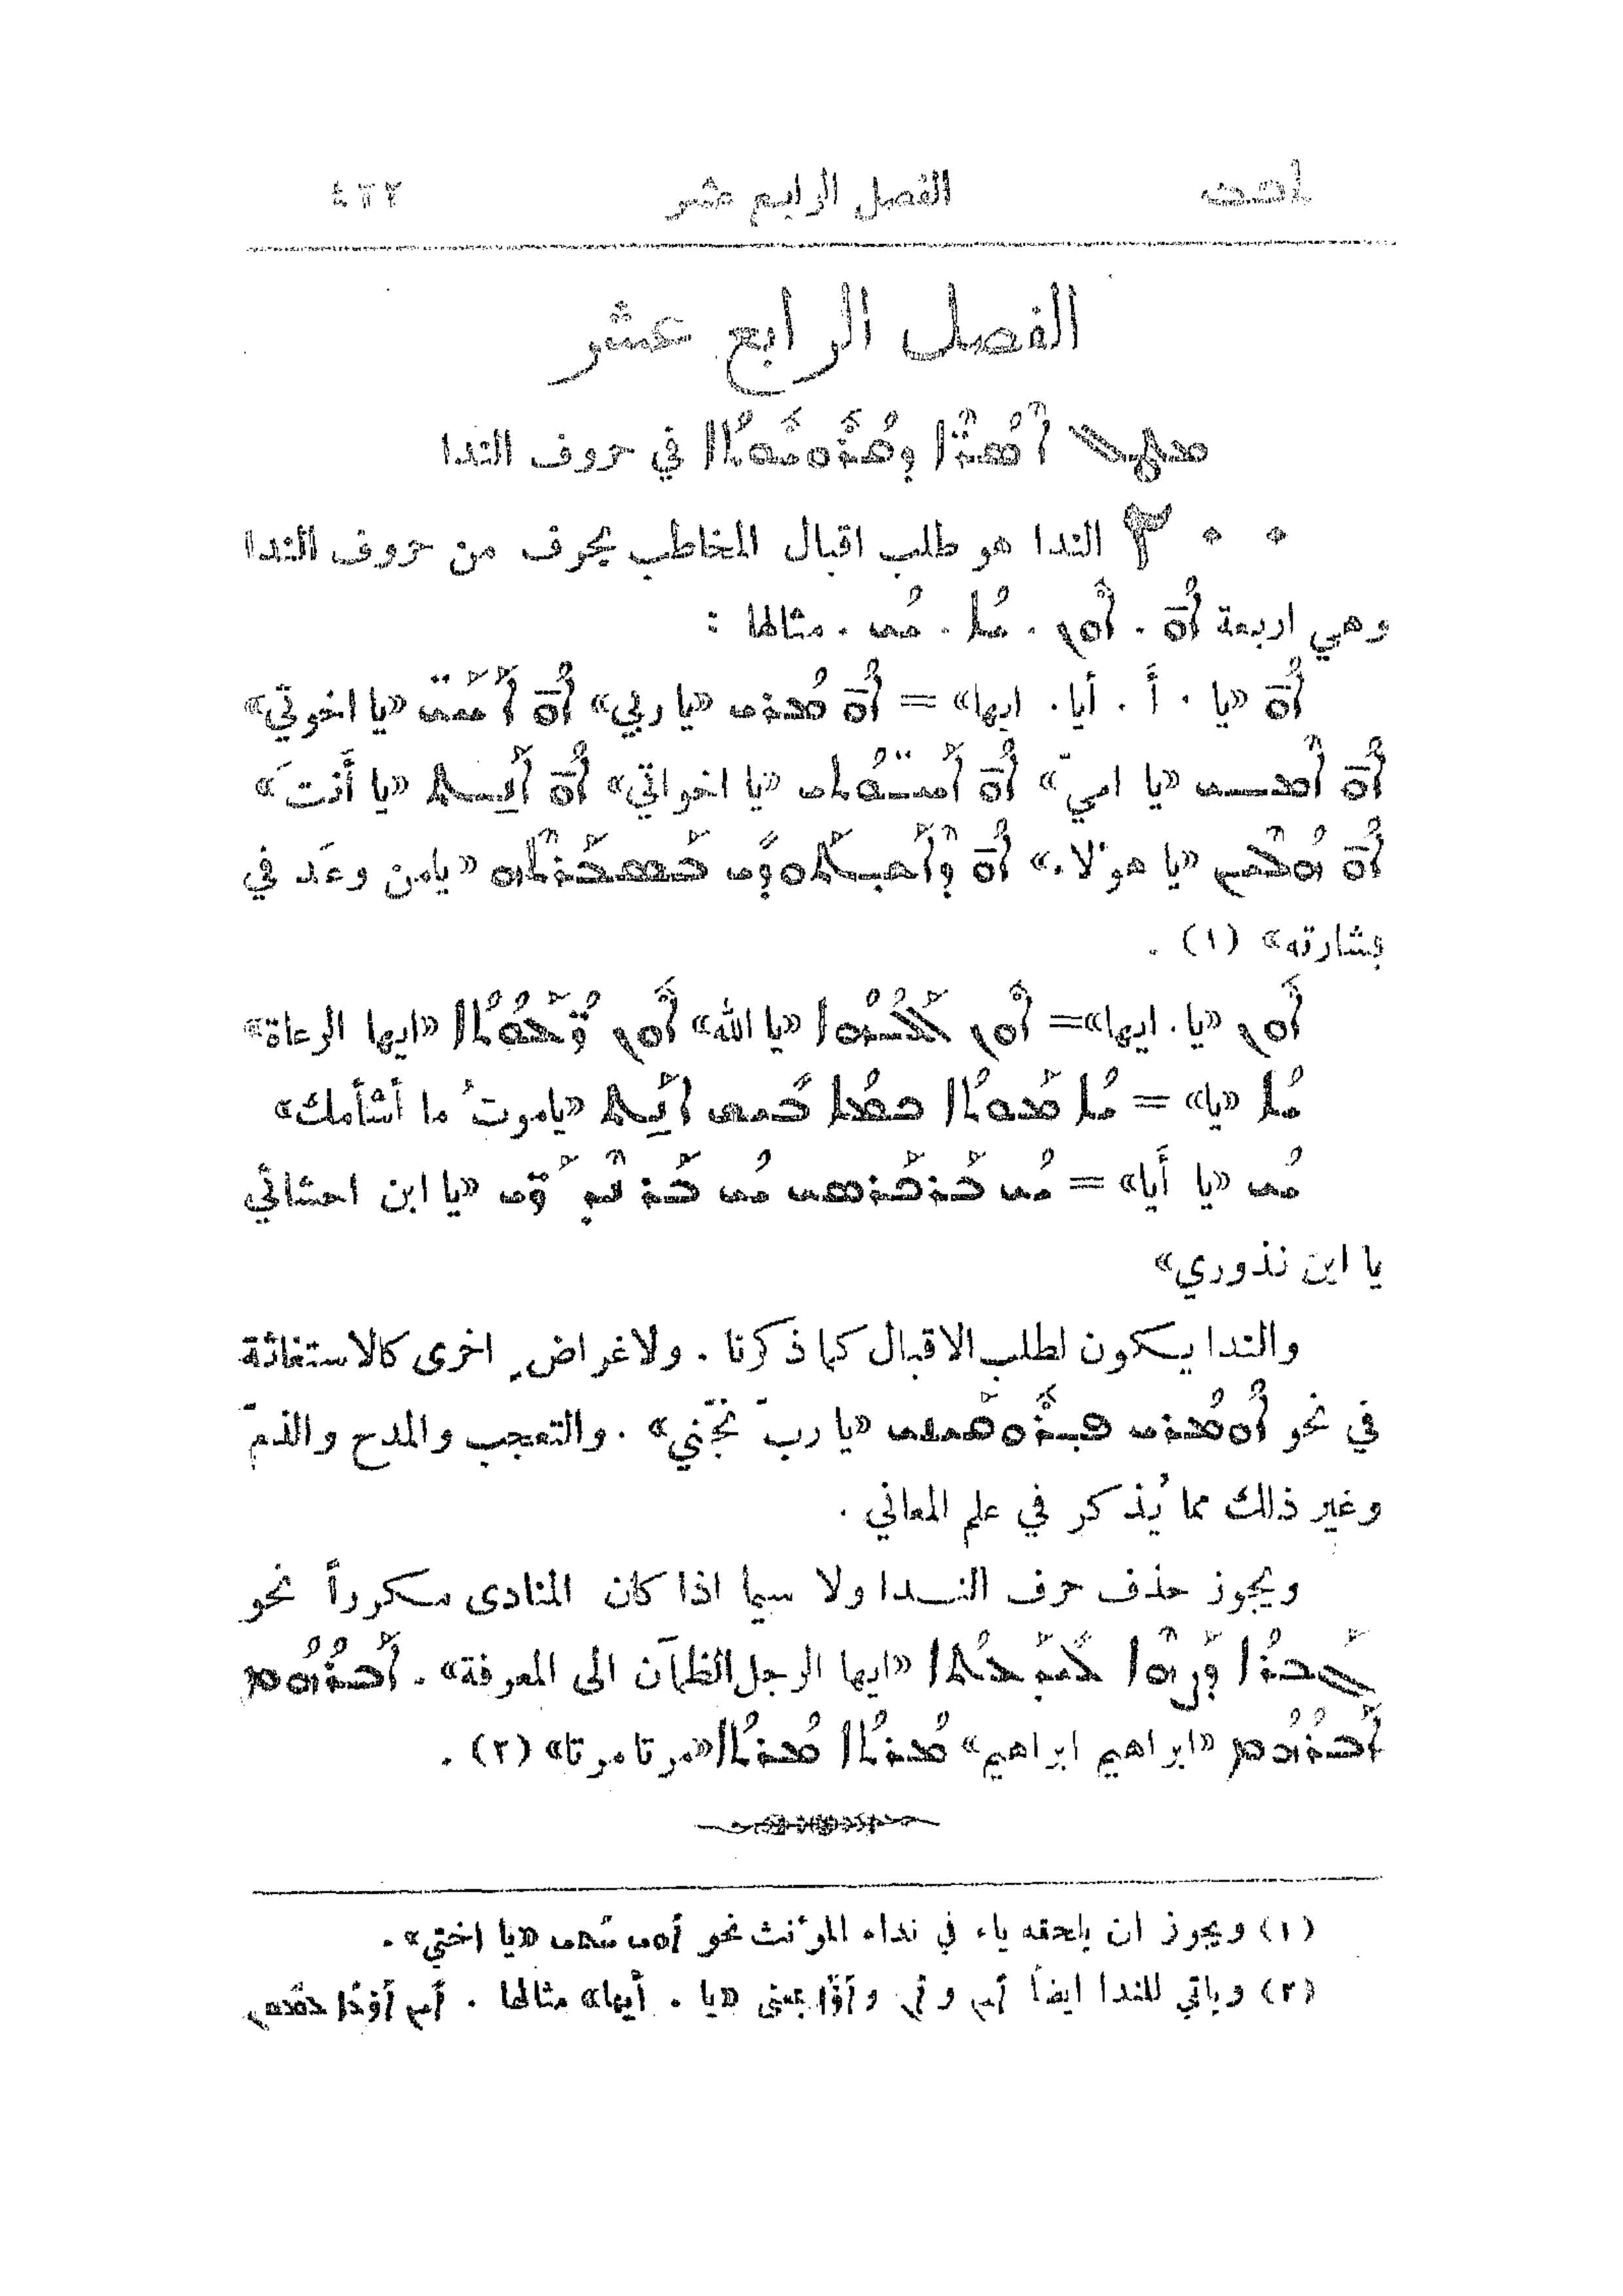 الفصل الرابع عشر ٤٢٢
الفصل الرابع عشر
ܡܛܠ ܐܣܪ̈ܐ ܕܩܪܘܝܘܬܐ في حروف الندا
٣٠٠ الندا هو طلب اقبال المخاطب بحرف من حروف الندا
وهي اربعة ܐܳܘ . ܐܘܢ . ܝܳܐ . ܝܳܝ . مثالها :
ܐܳܘ «يا . أ . أيا . ايها» = ܐܳܘ ܡܳܪܝ «يا ربي» ܐܳܘ ܐܰܚܰܝ̈ «يا اخوتي»
ܐܳܘ ܐܶܡܝ «يا اميّ» ܐܳܘ ܐܰܚܘ̈ܳܬܝ «يا اخواتي» ܐܳܘ ܐܰܢ̱ܬ «يا أَنتَ»
ܐܳܘ ܗܳܠܶܝܢ «يا هؤلاء» ܐܳܘ «يامن وعَد في
بشارته» (١) .
«يا . ايها» = ܐܰܠܳܗܳܐ «يا الله» ܪ̈ܳܥܰܘܳܬܐ «ايها الرعاة»
ܝܳܐ «يا» = ܝܳܐ ܡܰܘܬܐ ܟܡܳܐ ܒܺܝܫ ܐܰܢ̱ܬ «ياموتُ ما أشأمك»
ܝܳܝ «يا أَيا» = ܝܳܝ ܒܰܪ ܟܰܪܣܝ ܝܳܝ ܒܰܪ ܢܶܕܪ̈ܰܝ «يا ابن احشائي
يا ابن نذوري»
والندا يكون لطلب الاقبال كما ذكرنا . ولاغراضٍ اخرى كالاستغاثة
في نحو ܐܳܘ ܡܳܪܝ ܦܪܘܩܝܢܝ «يا ربّ نجّني» . والتعجب والمدح والذمّ
وغير ذلك مما يُذكر في علم المعاني .
ويجوز حذف حرف الندا ولا سيما اذا كان المنادى مكرراً نحو
ܓܰܒܪܳܐ ܕܨܗܶܐ ܠܝܺܕܰܥܬܳܐ «ايها الرجل الظمآن الى المعرفة» . ܐܰܒܪܳܗܳܡ
ܐܰܒܪܳܗܳܡ «ابراهيم ابراهيم» ܡܳܪܬܳܐ ܡܳܪܬܳܐ «مرتا مرتا» (٢) .
(١) ويجوز ان يلحقه ياء في نداء المؤنث نحو ܐܘܝ ܚܳܬܝ «يا اختي» .
(٢) وياتي للندا ايضاً و و بمعنى «يا . أيها» مثالها .